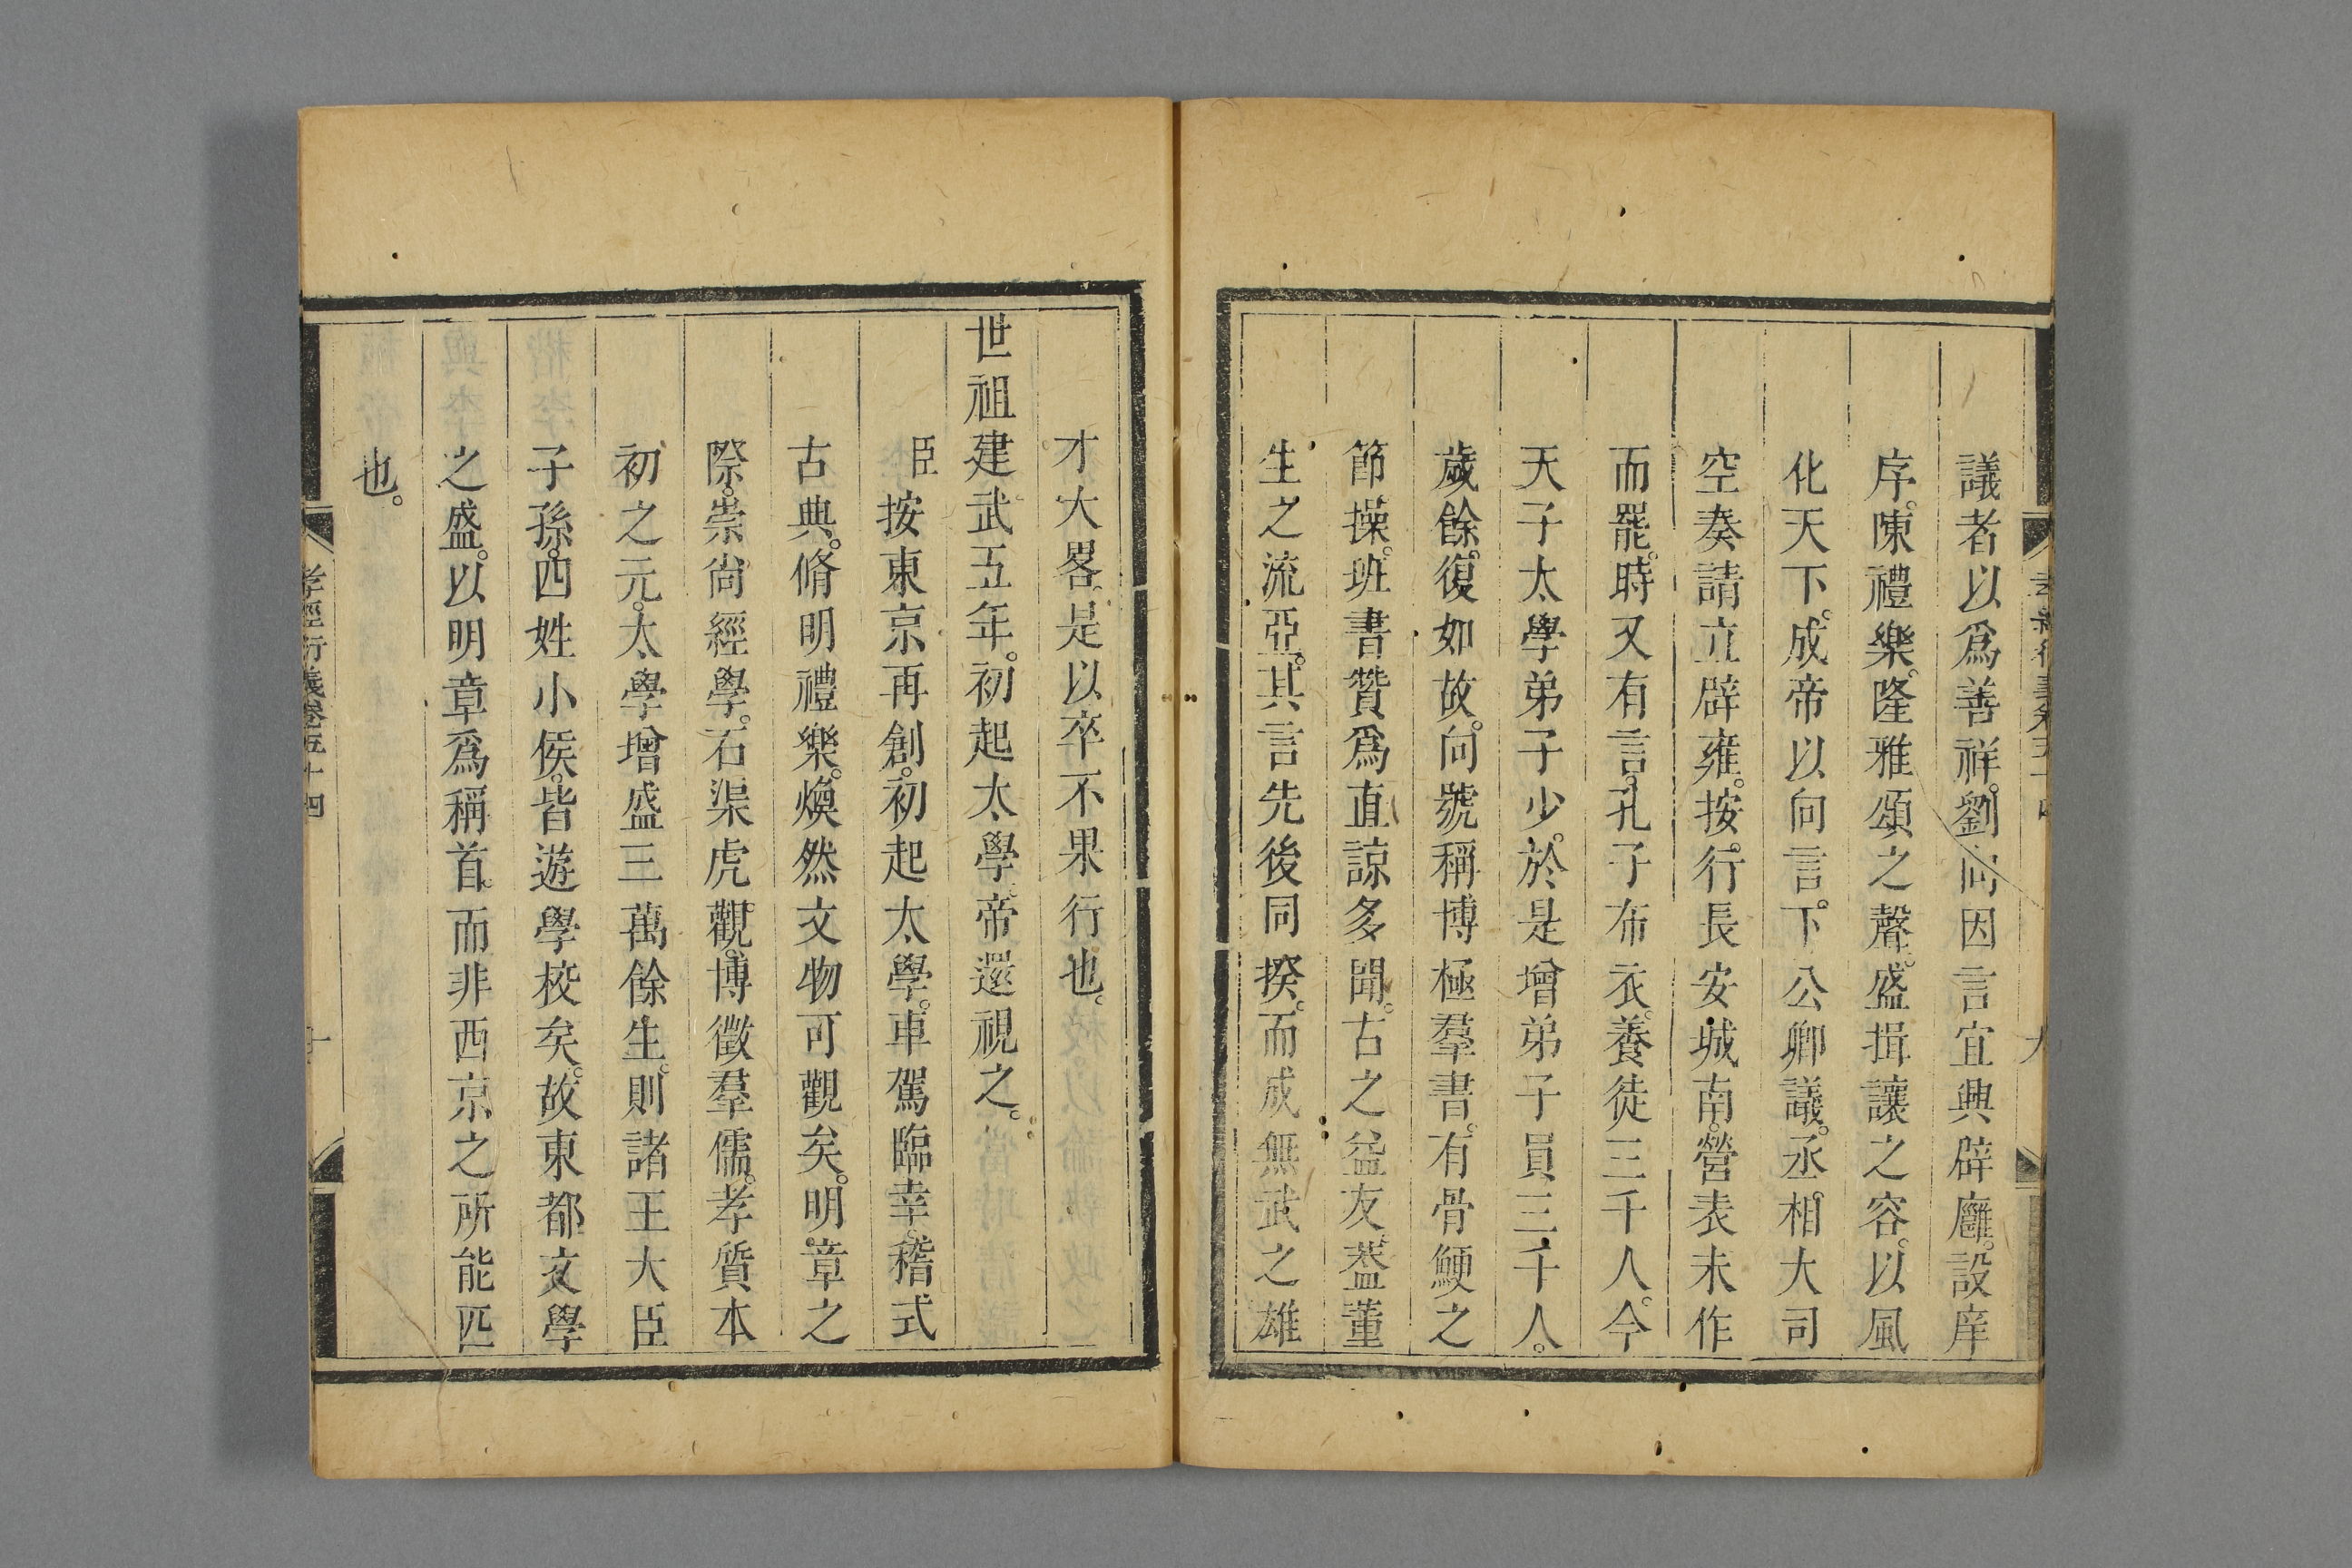 議者以爲善祥。劉向因言宜興辟廱。設庠
序。陳禮樂。隆雅頌之聲。盛揖讓之容。以風
化天下。成帝以向言。下公卿議。丞相大司
空奏請立辟雍。按行長安城南。營表未作
而罷。時又有言。孔子布衣。養徒三千人。今
天子太學弟子少。於是增弟子員三千人。
歲餘。復如故。向號稱博極羣書。有骨鯁之
節操。班書贊爲直諒多聞。古之益友。葢董
生之流亞。其言先後同揆。而成無武之雄
才大畧。是以卒不果行也。
世祖建武五年。初起太學帝還視之。
臣按東京再創。初起太學。車駕臨幸。稽式
古典。脩明禮樂。煥然文物可觀矣。明。章之
際。崇尙經學。石渠虎觀。博徵羣儒。孝質本
初之元。太學增盛三萬餘生。則諸王大臣
子孫。四姓小侯。皆遊學校矣。故東都文學
之盛。以明章爲稱首。而非西京之所能匹
也。
孝經衍義卷五十四
十